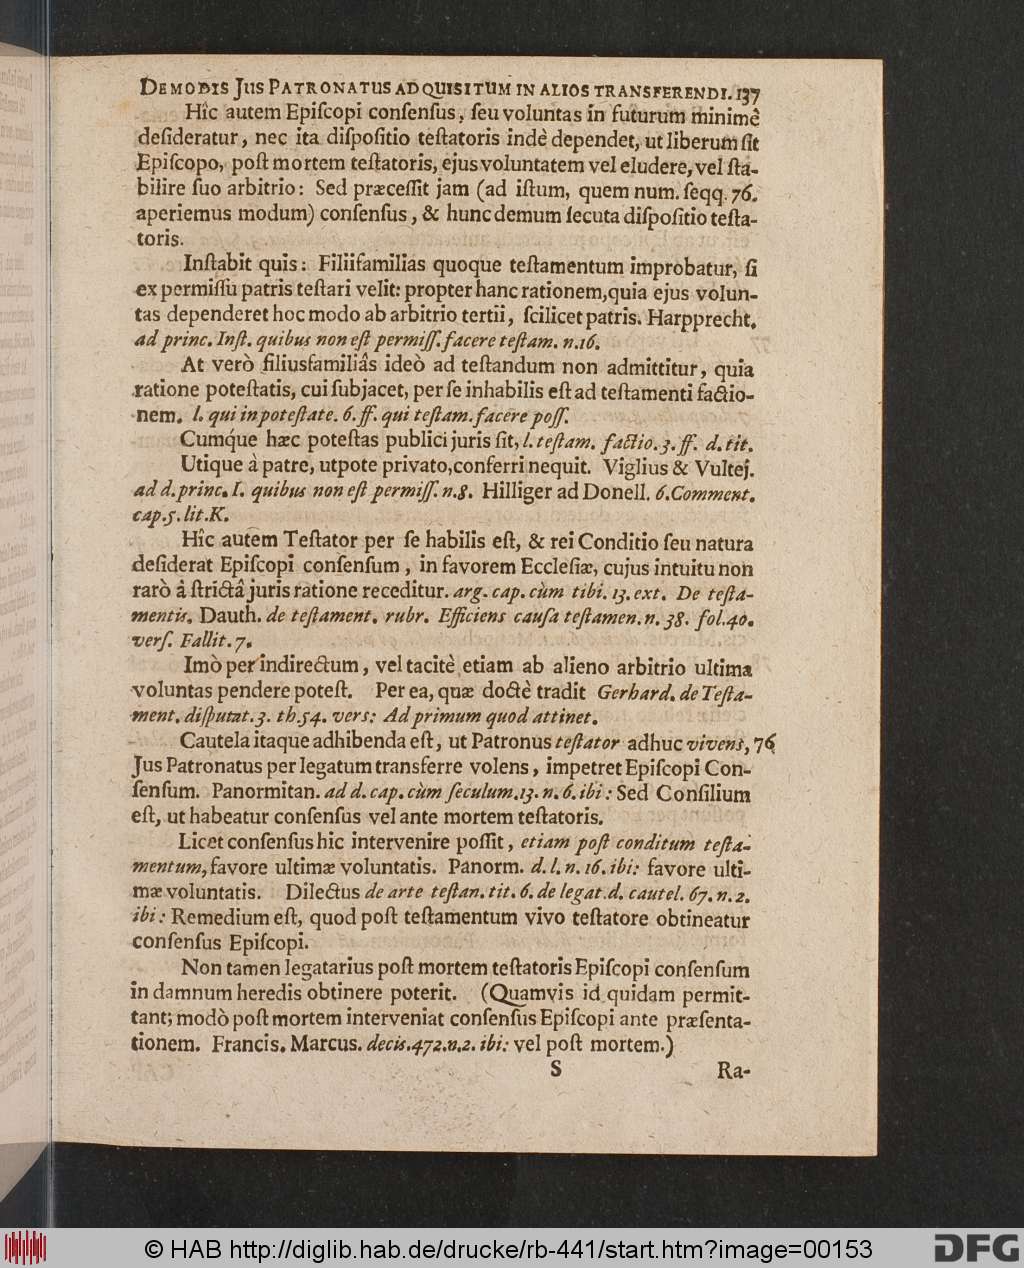 DE MODIS JUS PATRONATUS ADQUISITUM IN ALIOS TRANSFERENDI. 137
Hîc autem Epiſcopi conſenſus, ſeu voluntas in futurum minimê
deſideratur, nec ita diſpoſitio teſtatoris indè dependet, ut liberum ſit
Epiſcopo, poſt mortem teſtatoris, ejus voluntatem vel eludere, vel ſta-
bilire ſuo arbitrio: Sed præceſſit jam (ad iſtum, quem num. ſeqq. 76.
aperiemus modum) conſenſus, & hunc demum ſecuta diſpoſitio teſta-
toris.
Inſtabit quis: Filiifamilias quoque teſtamentum improbatur, ſi
ex permiſſu patris teſtari velit: propter hanc rationem, quia ejus volun-
tas dependeret hoc modo ab arbitrio tertii, ſcilicet patris. Harpprecht.
ad princ. Inſt. quibus non eſt permiſſ. facere teſtam. n.16.
At verò filiusfamiliâs ideò ad teſtandum non admittitur, quia
ratione poteſtatis, cui ſubjacet, per ſe inhabilis eſt ad teſtamenti factio-
nem. l. qui in poteſtate. 6. ff. qui teſtam. facere poſſ.
Cumq́ue hæc poteſtas publici juris ſit, l. teſtam. factio. 3. ff. d. tit.
Utique à patre, utpote privato, conferri nequit. Viglius & Vultej.
ad d. princ. I. quibus non eſt permiſſ. n.8. Hilliger ad Donell. 6. Comment.
cap. 5. lit. K.
Hîc autem Teſtator per ſe habilis eſt, & rei Conditio ſeu natura
deſiderat Epiſcopi conſenſum, in favorem Eccleſiæ, cujus intuitu non
rarò â ſtrictâ juris ratione receditur. arg. cap. cùm tibi. 13. ext. De teſta-
mentis. Dauth. de teſtament. rubr. Efficiens cauſa teſtamen. n. 38. fol. 40.
verſ. Fallit. 7.
Imò per indirectum, vel tacitè etiam ab alieno arbitrio ultima
voluntas pendere poteſt. Per ea, quæ doctè tradit Gerhard. de Teſta-
ment. diſputat. 3. th. 54. vers: Ad primum quod attinet.
Cautela itaque adhibenda eſt, ut Patronus teſtator adhuc vivens, 76
Jus Patronatus per legatum transferre volens, impetret Epiſcopi Con-
ſenſum. Panormitan. ad d. cap. cùm ſeculum. 13. n. 6. ibi: Sed Conſilium
eſt, ut habeatur conſenſus vel ante mortem teſtatoris.
Licet conſenſus hic intervenire poſſit, etiam poſt conditum teſta-
mentum, favore ultimæ voluntatis. Panorm. d. l. n. 16. ibi: favore ulti-
mæ voluntatis. Dilectus de arte teſtan. tit. 6. de legat. d. cautel. 67. n. 2.
ibi: Remedium eſt, quod poſt teſtamentum vivo teſtatore obtineatur
conſenſus Epiſcopi.
Non tamen legatarius poſt mortem teſtatoris Epiſcopi conſenſum
in damnum heredis obtinere poterit. (Quamvis id quidam permit-
tant; modò poſt mortem interveniat conſenſus Epiſcopi ante præſenta-
tionem. Francis. Marcus. decis. 472. n. 2. ibi: vel poſt mortem.)
S Ra-
© HAB http://diglib.hab.de/drucke/rb-441/start.htm?image=00153
DFG